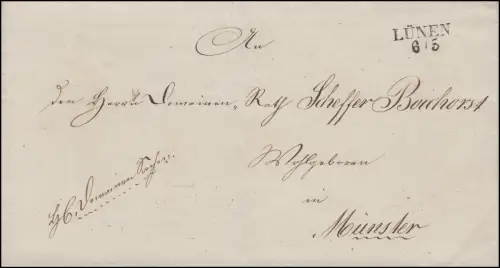 An
LÜNEN
6/3
den Herrn Domainen-Rath Scheffer Boichorst
Wohlgeboren
in
Münster
Domainen Sache.